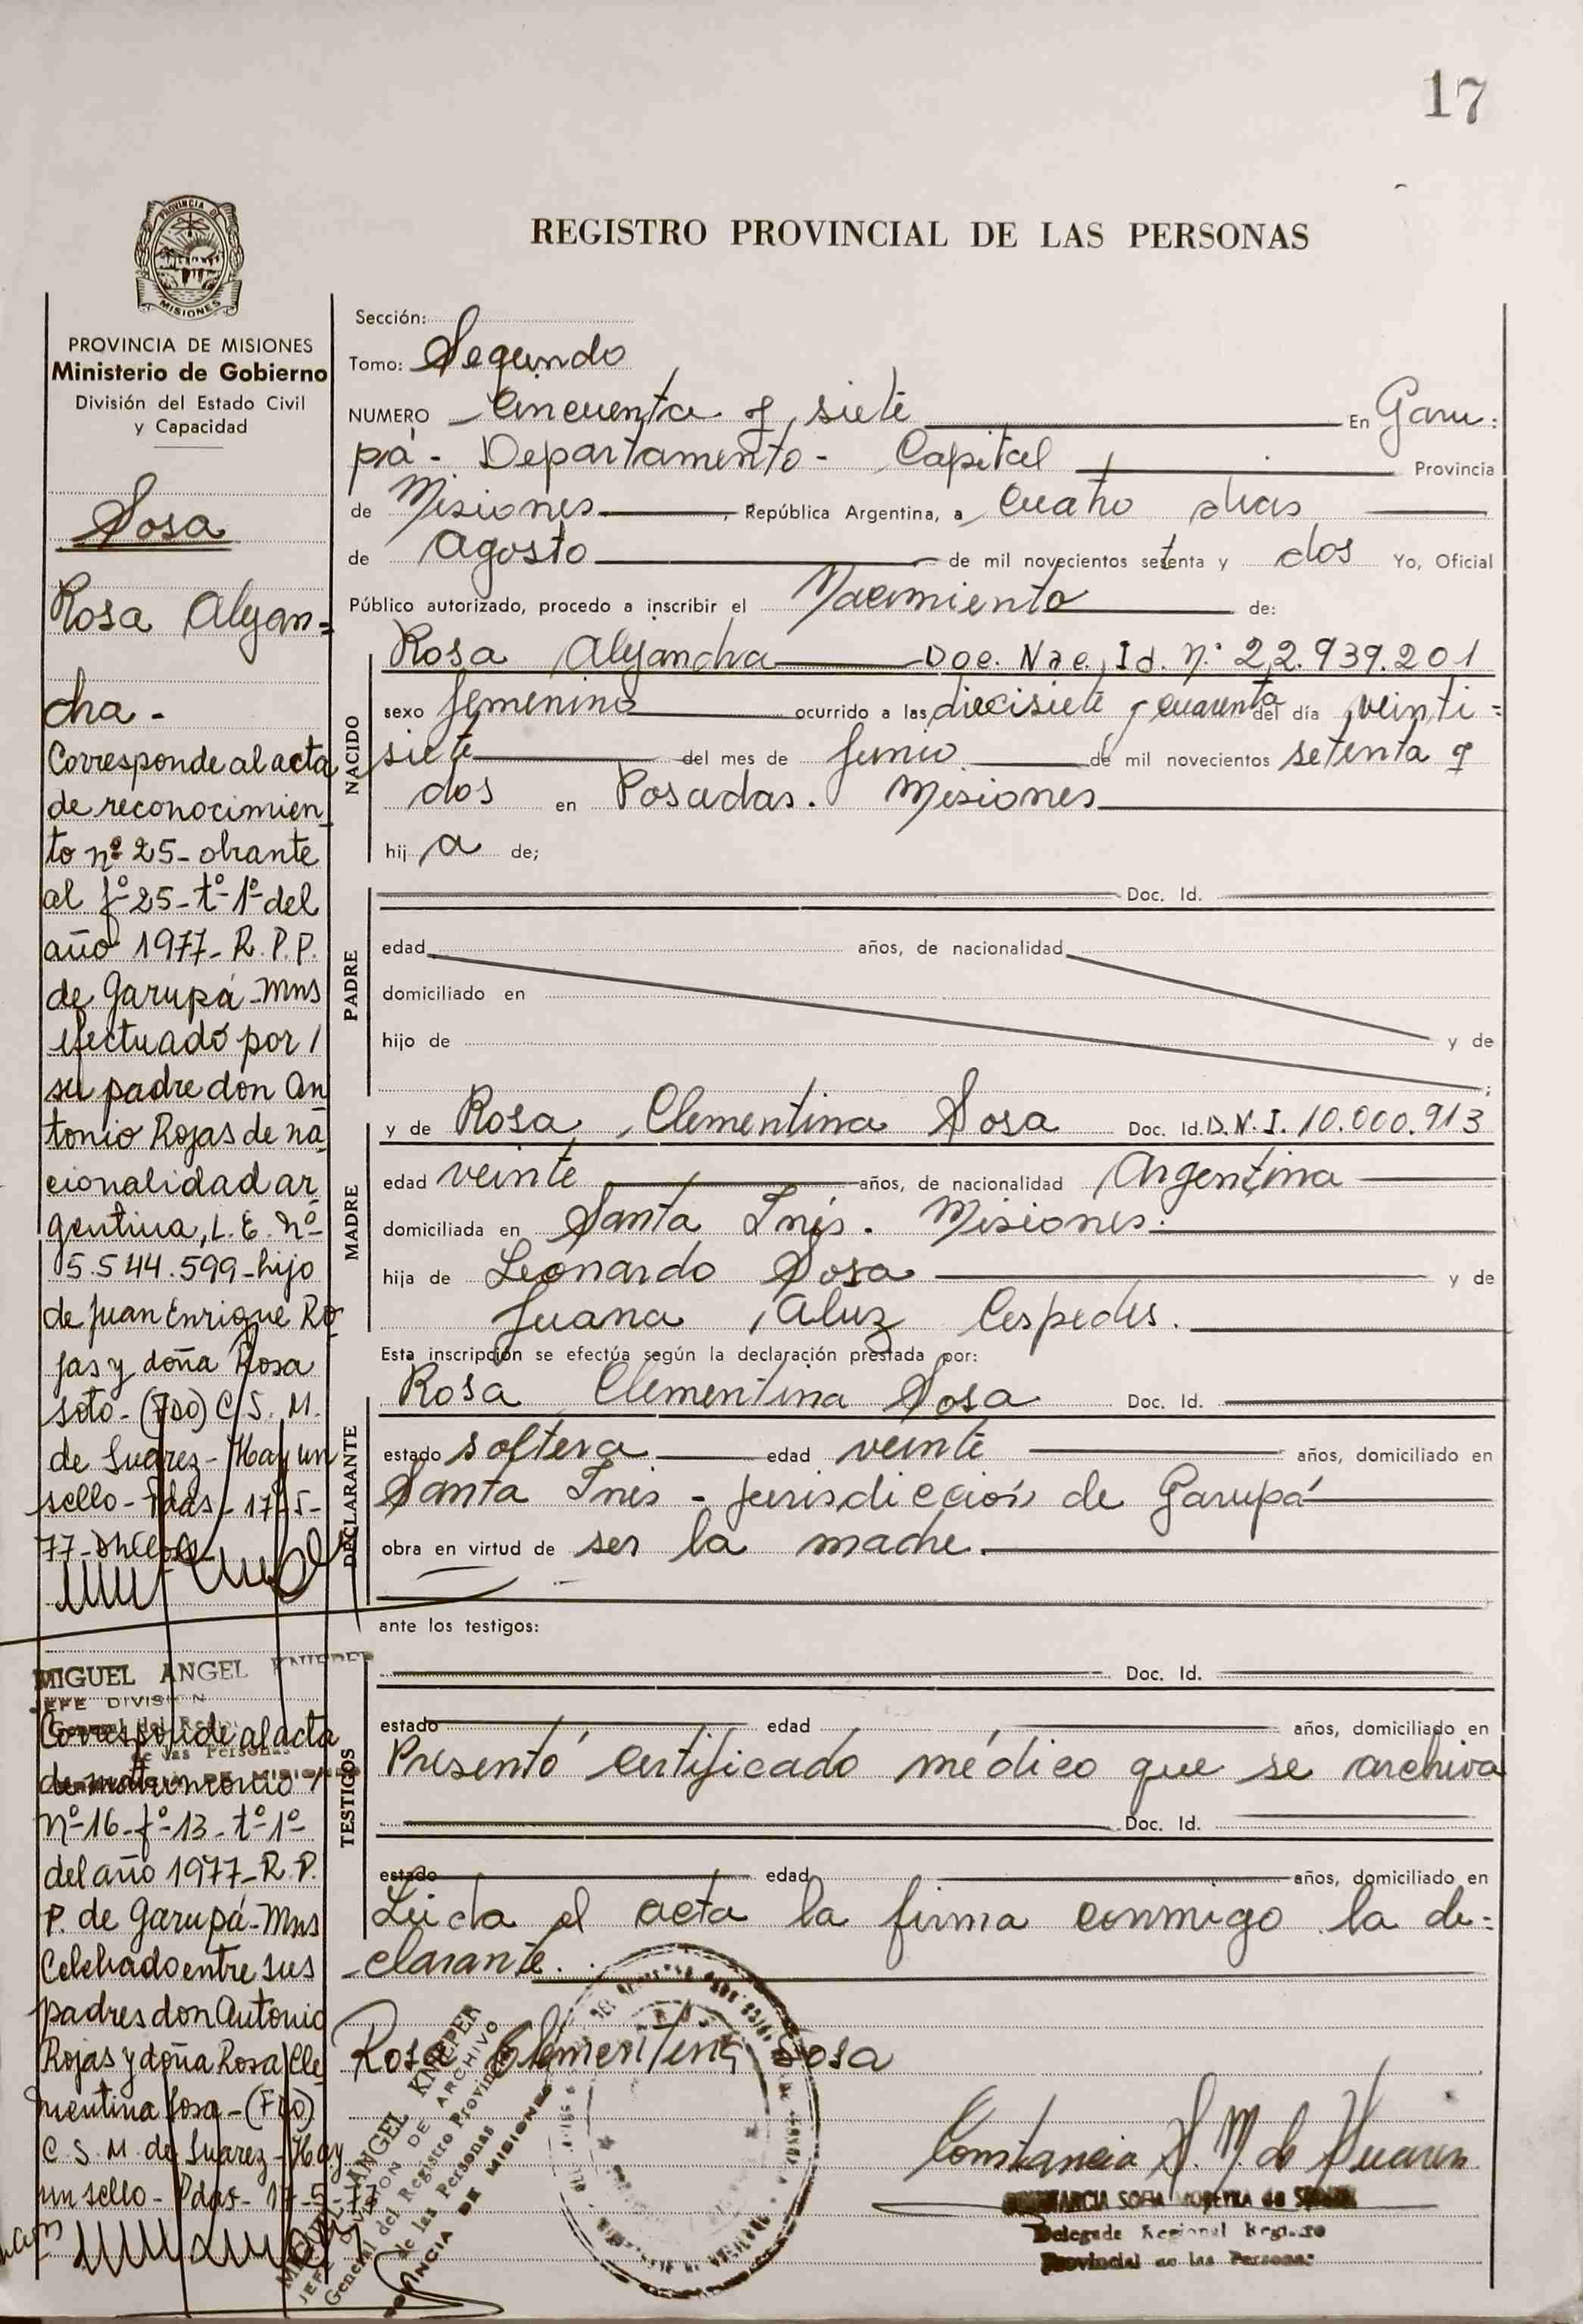 17
PROVINCIA DE
MISIONES
REGISTRO PROVINCIAL DE LAS PERSONAS
PROVINCIA DE MISIONES
Ministerio de Gobierno
División del Estado Civil
y Capacidad
Sosa
Rosa Alejan=
dra -
Corresponde al acta
de reconocimien
to nº 25 - obrante
al fº 25 - tº 1º del
año 1977 - R. P. P.
de Garupá - Mnes
efectuado por /
su padre don An
tonio Rojas de na
cionalidad ar
gentina, L. E. Nº
5.544.599 - hijo
de Juan Enrique Ro
jas y doña Rosa
Soto - (Fdo) C. S. M.
de Suarez - Hay un
sello - Pdas - 17-5-
77 -
MIGUEL ANGEL KNIEPER
JEFE DIVISION
General del
de las Personas
DE MISIONES
Corresponde al acta
de matrimonio
Nº 16 - fº 13 - tº 1º
del año 1977 - R. P.
P. de Garupá - Mns
Celebrado entre sus
padres don Antonio
Rojas y doña Rosa Cle
mentina Sosa - (Fdo)
C. S. M. de Suarez - Hay
un sello - Pdas - 17-5-77
Sección:
Tomo: Segundo
NUMERO Cincuenta y siete En Garu:
pá - Departamento - Capital Provincia
de Misiones, República Argentina, a Cuatro dias
de Agosto de mil novecientos setenta y dos Yo, Oficial
Público autorizado, procedo a inscribir el Nacimiento de:
NACIDO
Rosa Alejandra Doc. Nac. Id. N.º 22.939.201
sexo femenino ocurrido a las diecisiete y cuarenta del día veinti=
siete del mes de Junio de mil novecientos setenta y
dos en Posadas. Misiones
hij a de;
PADRE
Doc. Id.
edad años, de nacionalidad
domiciliado en
hijo de y de
MADRE
y de Rosa Clementina Sosa Doc. Id. D.N.I. 10.000.913
edad veinte años, de nacionalidad Argentina
domiciliada en Santa Inés. Misiones.
hija de Leonardo Sosa y de
Juana Aluz Cespedes.
Esta inscripción se efectúa según la declaración prestada por:
DECLARANTE
Rosa Clementina Sosa Doc. Id.
estado soltera edad veinte años, domiciliado en
Santa Inés - jurisdicción de Garupá
obra en virtud de ser la madre.
ante los testigos:
TESTIGOS
Doc. Id.
estado edad años, domiciliado en
Presentó certificado médico que se archiva
Doc. Id.
estado edad años, domiciliado en
Leida el acta la firma conmigo la de=
clarante.
Rosa Clementina Sosa
MIGUEL ANGEL KNIEPER
JEFE DIVISION DE ARCHIVO
General del Registro Provincial
de las Personas
PROVINCIA DE MISIONES
Constancia S. M. de Suarez
CONSTANCIA SOFIA MOREYRA de SUAREZ
Delegada Regional Registro
Provincial de las Personas